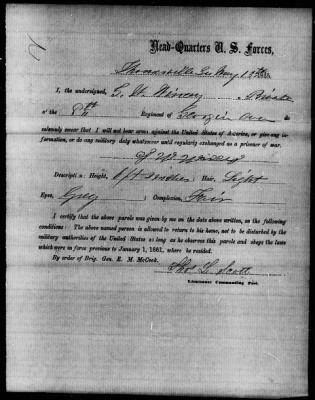 Head-Quarters U. S. Forces,
Thomasville Ga May 1865
I, the undersigned, Private
of the 8th Regiment of Georgia Cav do
solemnly swear that I will not bear arms against the United States of America, or give any in-
formation, or do any military duty whatsoever until regularly exchanged as a prisoner of war.
Description: Height, 6 ft inches; Hair, Light
Eyes, Grey; Complexion, Fair
I certify that the above parole was given by me on the date above written, on the following
conditions: The above named person is allowed to return to his home, not to be disturbed by the
military authorities of the United States so long as he observes this parole and obeys the laws
which were in force previous to January 1, 1861, where he resided.
By order of Brig. Gen. E. M. McCook.
Thos. L. Scott
Lieutenant Commanding Post.